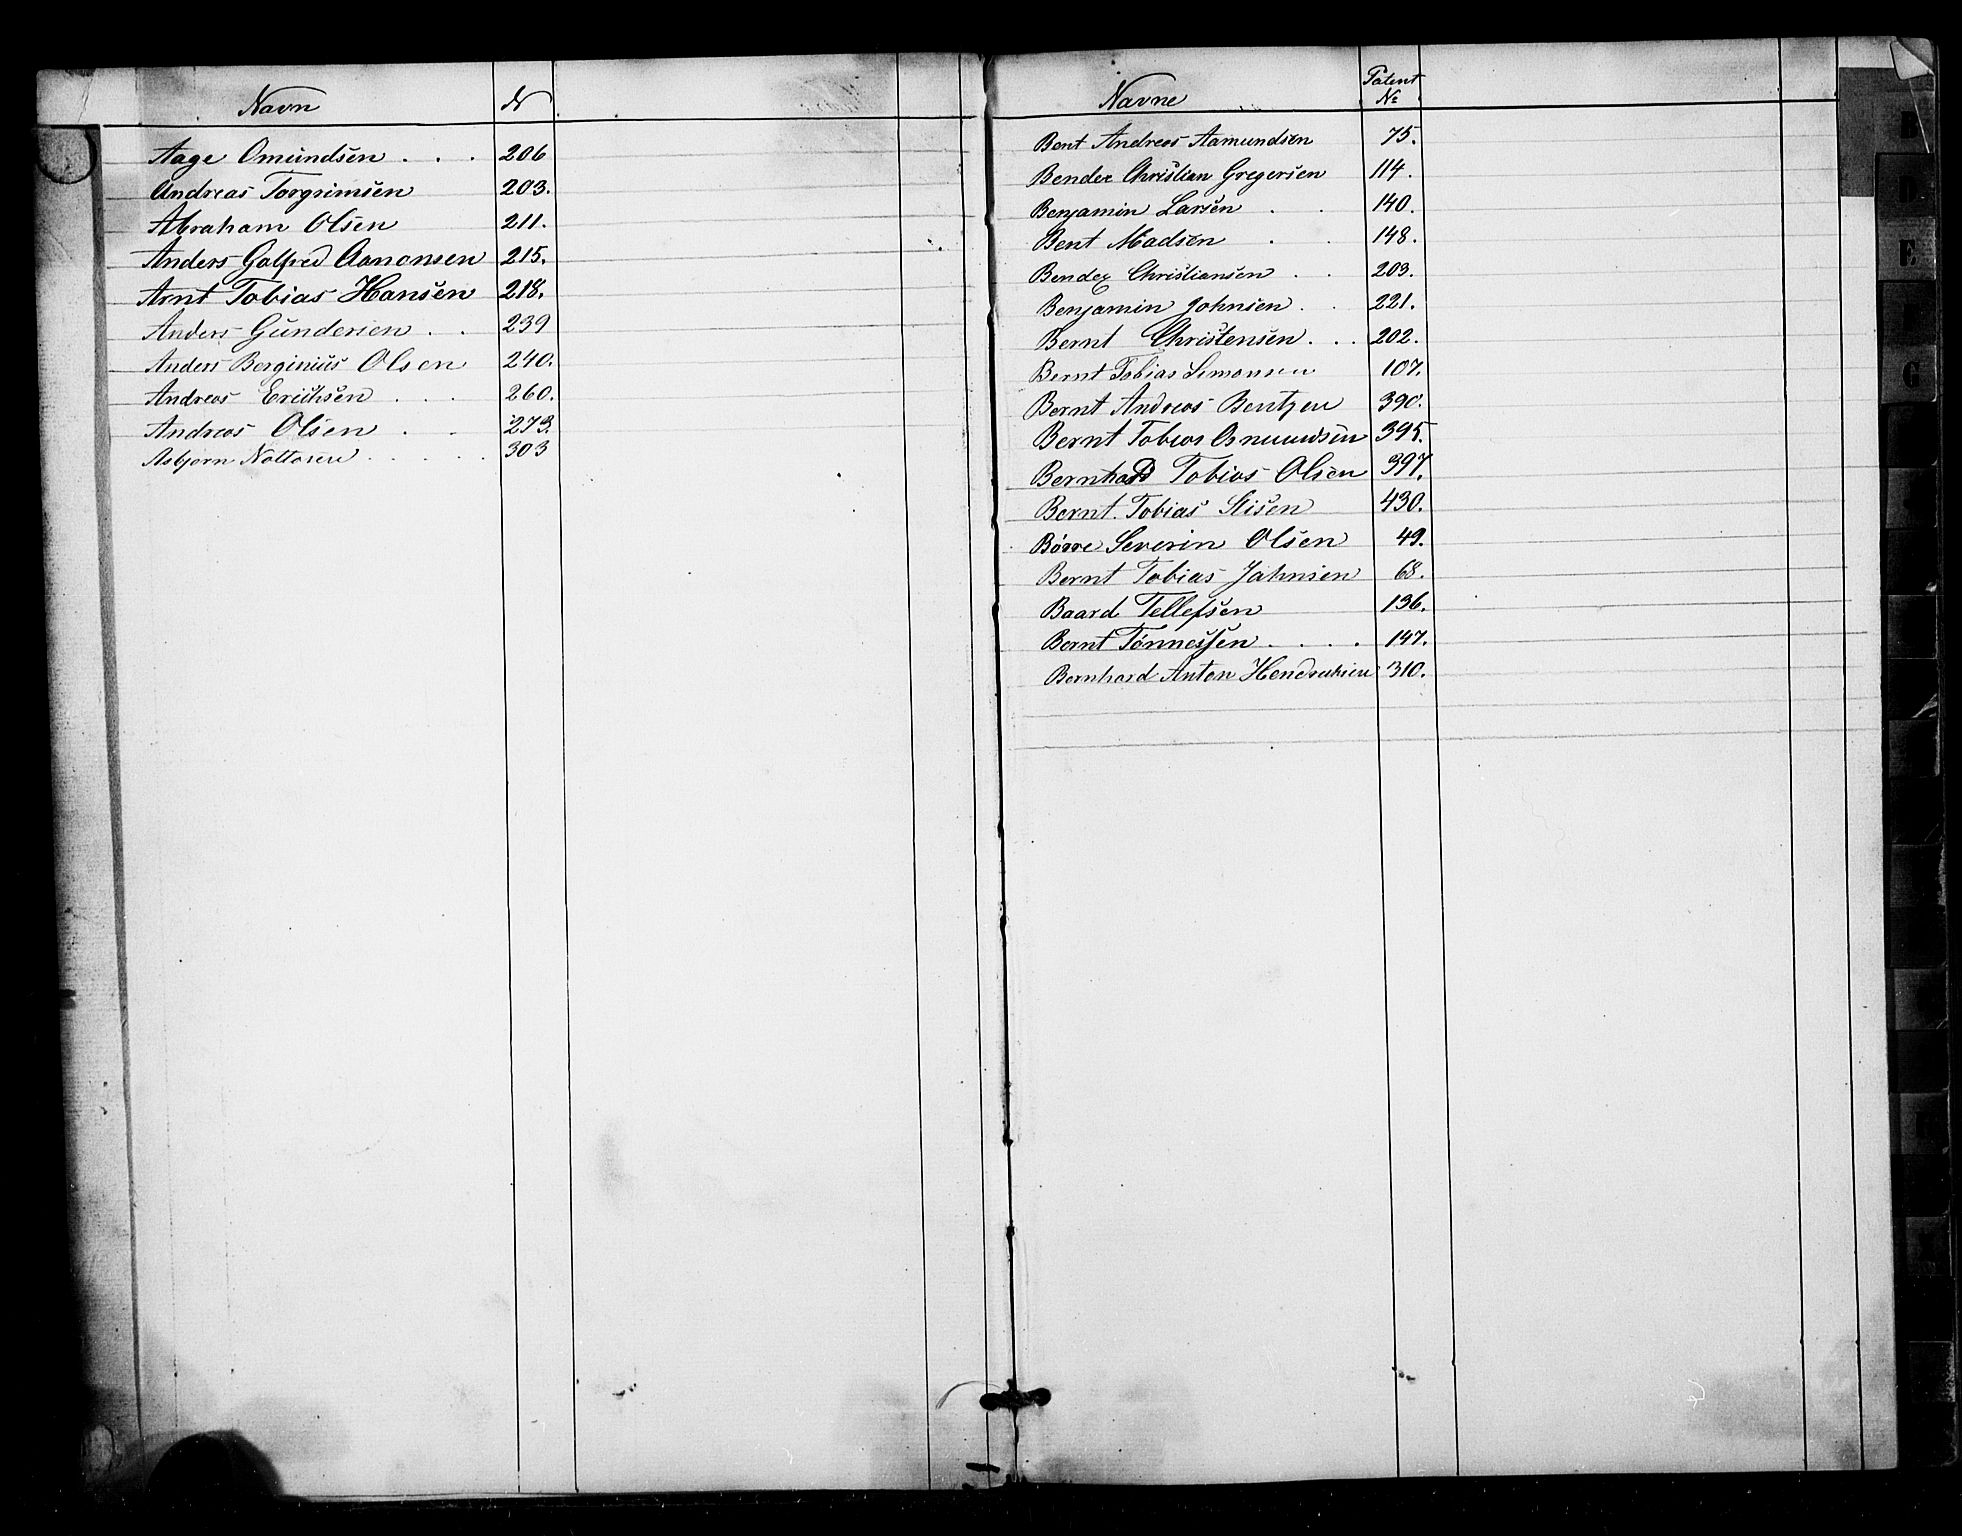 Navn N
Aage Omundsen . . . 206
Andreas Torgrimsen 203.
Abraham Olsen 211.
Anders Golfred Aanonsen 215.
Arnt Tobias Hansen 218.
Anders Gundersen . . 239
Anders Berginius Olsen 240.
Andreas Erichsen . . . 260.
Andreas Olsen . . 273.
Asbjørn Nottosen . . . . . 303
Navne Patent No
Bent Andreas Aamundsen 75.
Bendex Christian Gregersen 114.
Benjamin Larsen . . 140.
Bent Madsen . . 148.
Bendex Christiansen . . 203.
Benjamin Johnsen . . 221.
Bernt Christensen . . . 202.
Bernt Tobias Simonsen 107.
Bernt Andreas Bentzen 390.
Bernt Tobias Asmundsen 395.
Bernhard Tobias Olsen 397.
Bernt Tobias Stisen 430.
Børre Severin Olsen 49.
Bernt Tobias Jahnsen 68.
Baard Tellefsen 136.
Bernt Tønnessen . . . . 147.
Bernhard Anton Hendrichsen 310.
B
D
E
F
G